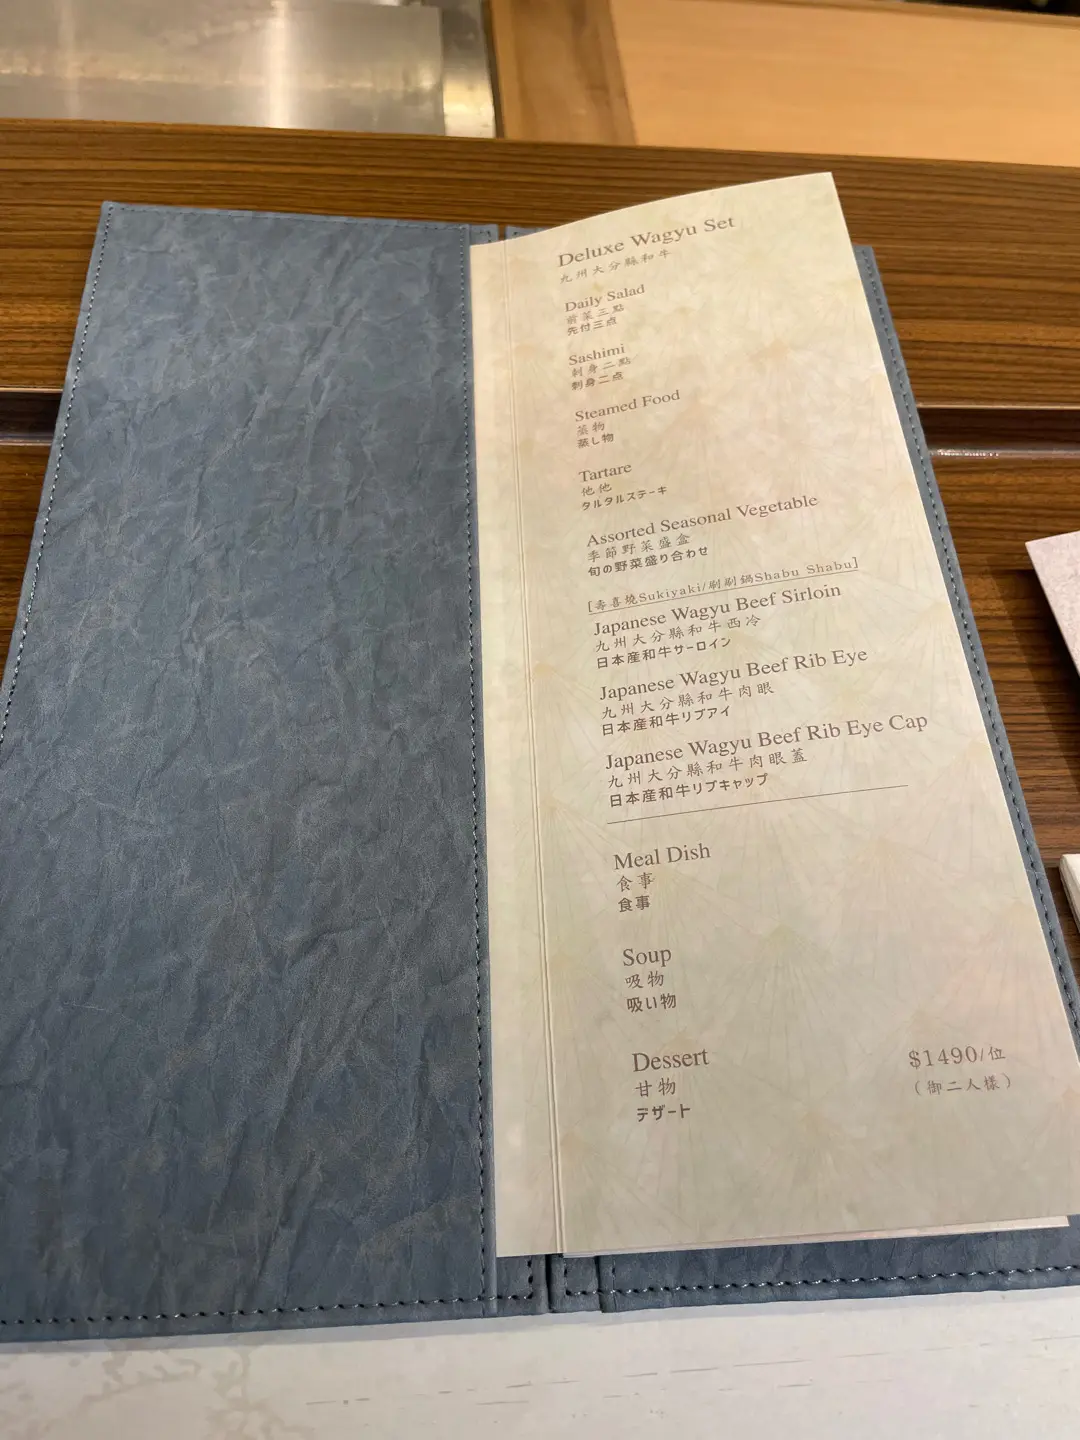 Deluxe Wagyu Set
九州大分縣和牛
Daily Salad
前菜三點
先付三点
Sashimi
刺身二點
刺身二点
Steamed Food
蒸物
蒸し物
Tartare
他他
タルタルステーキ
Assorted Seasonal Vegetable
季節野菜盛盒
旬の野菜盛り合わせ
[壽喜燒Sukiyaki/刷刷鍋Shabu Shabu]
Japanese Wagyu Beef Sirloin
九州大分縣和牛西冷
日本産和牛サーロイン
Japanese Wagyu Beef Rib Eye
九州大分縣和牛肉眼
日本産和牛リブアイ
Japanese Wagyu Beef Rib Eye Cap
九州大分縣和牛肉眼蓋
日本産和牛リブキャップ
Meal Dish
食事
食事
Soup
吸物
吸い物
Dessert
甘物
デザート
$1490/位
（御二人樣）